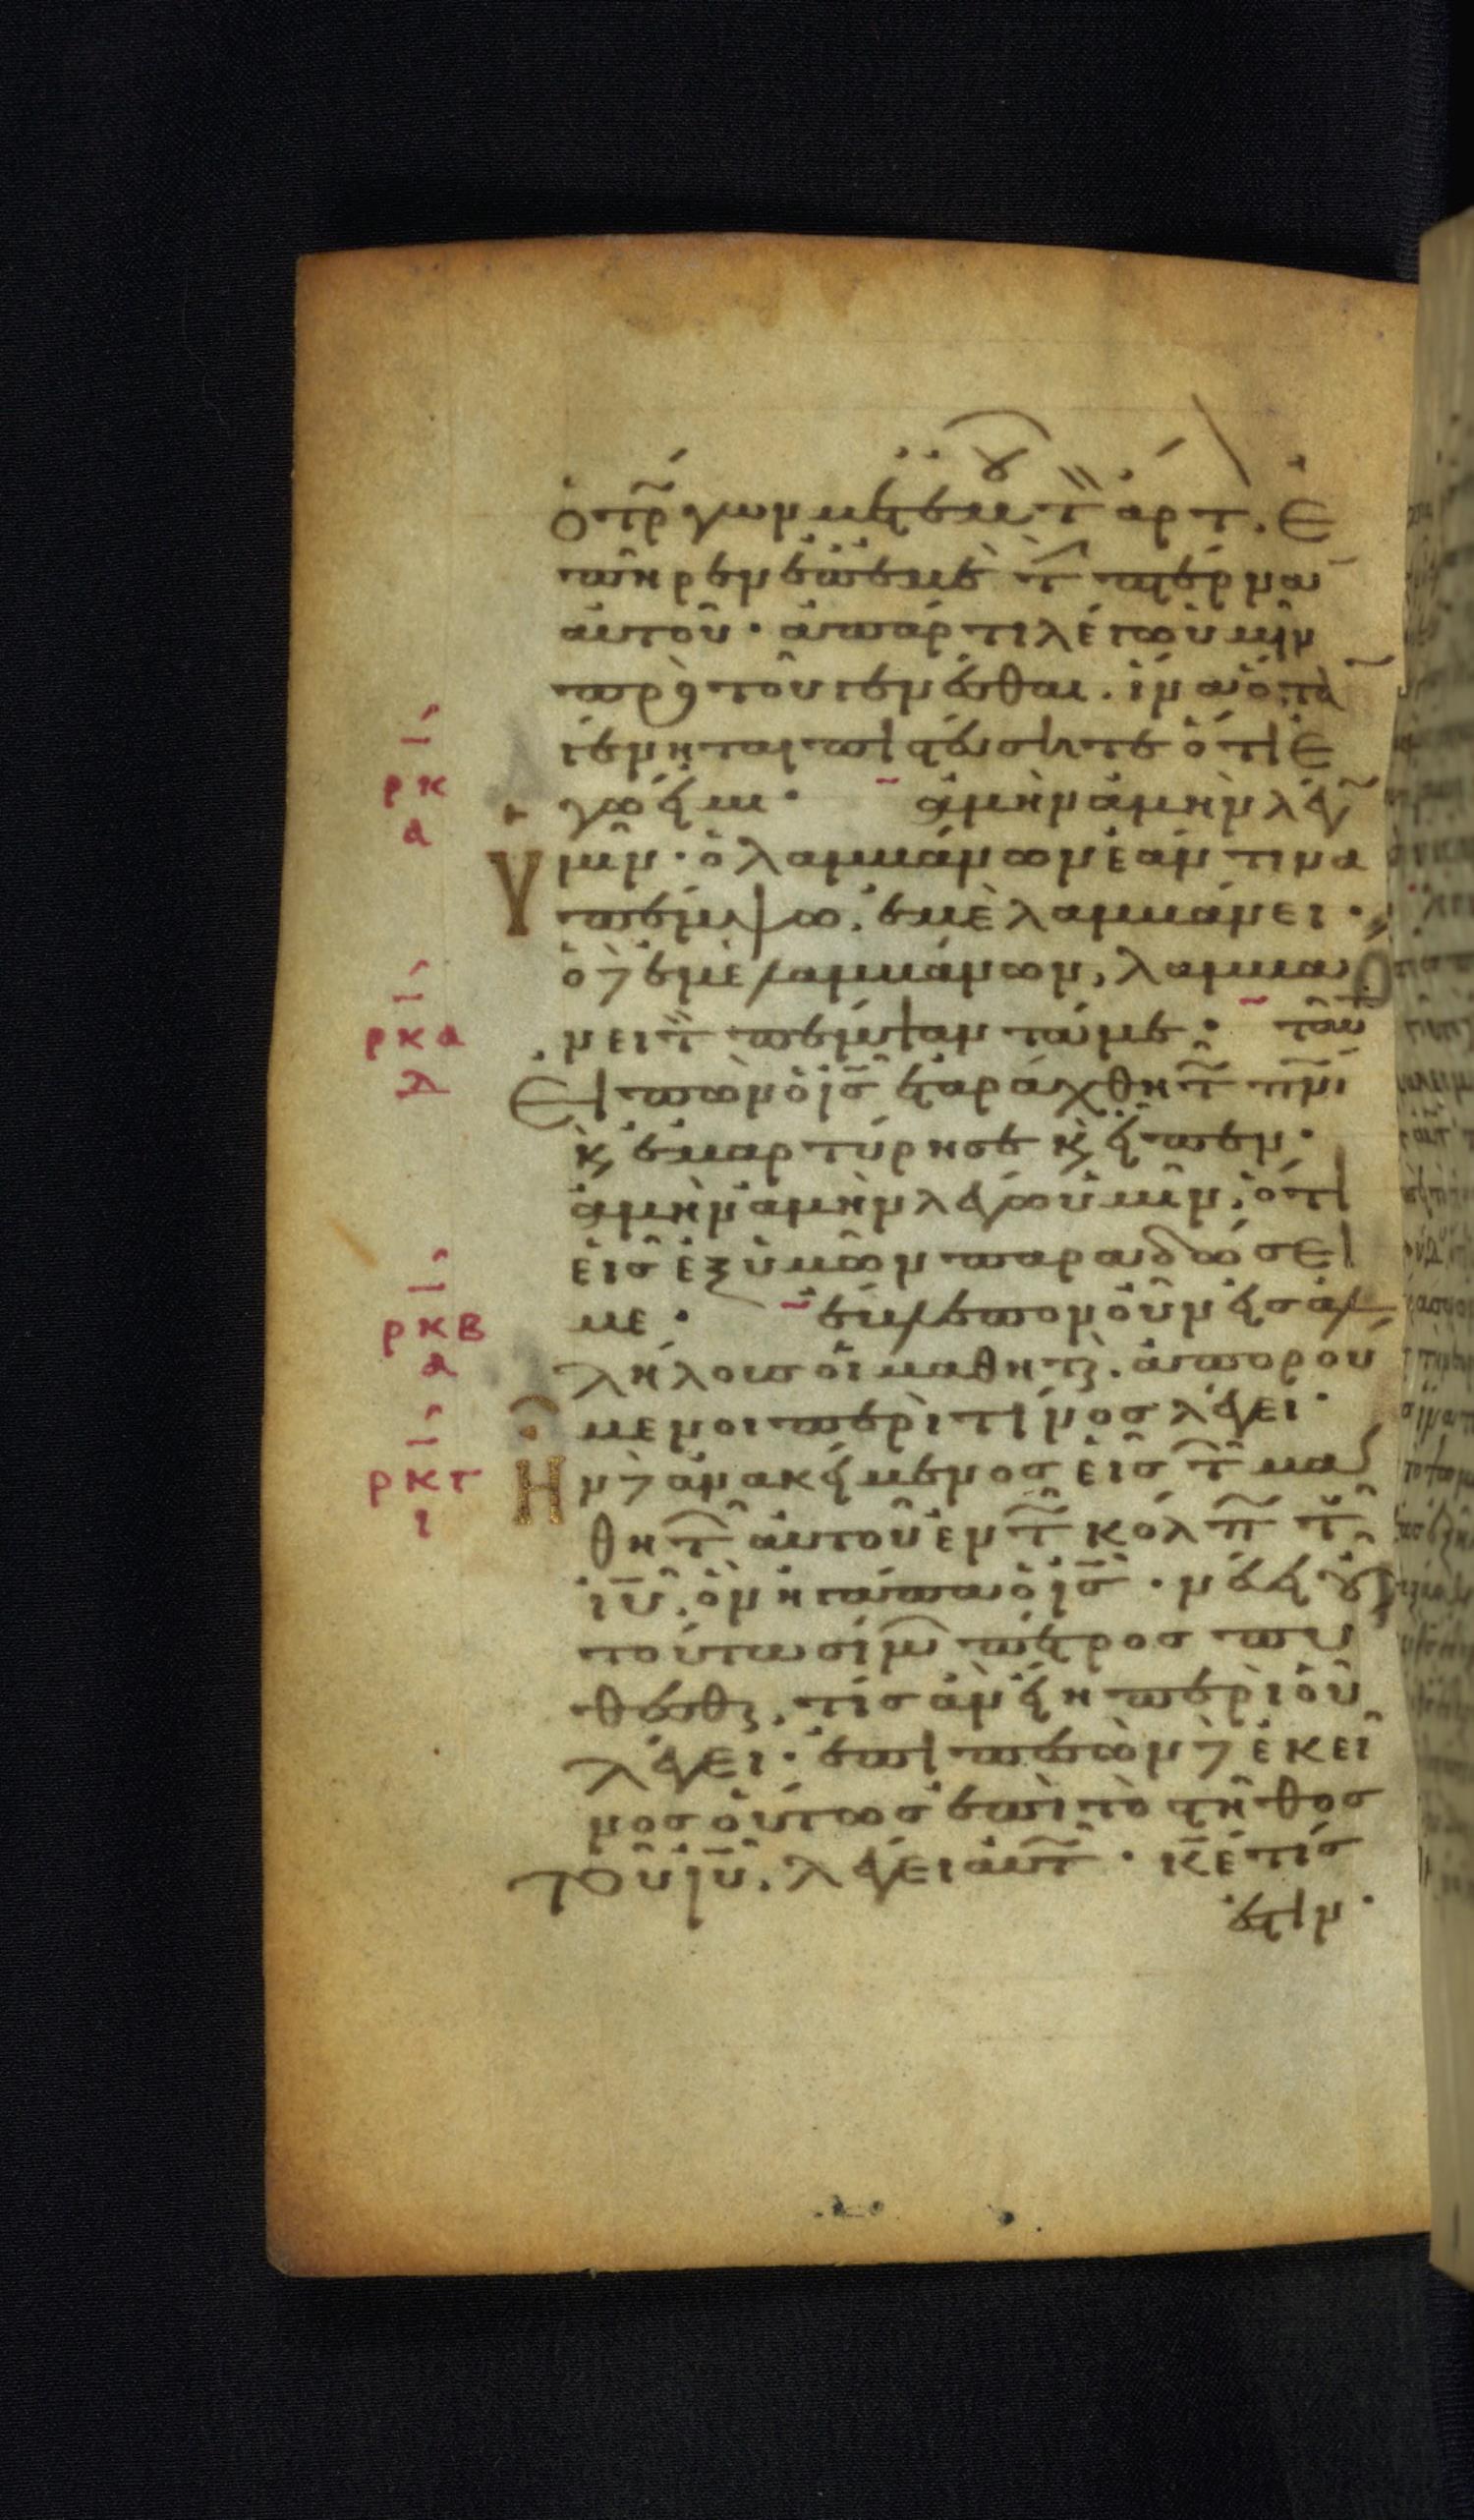 ὁ τρώγων μετ' ἐμοῦ τὸν ἄρτον. Ἐ
πῆρεν ἐπ' ἐμὲ τὴν πτέρναν
αὐτοῦ· ἀπάρτι λέγω ὑμῖν
πρὸ τοῦ γενέσθαι. ἵνα ὅταν
γένηται πιστεύσητε ὅτι ἐ
ρκ α γώ εἰμι· ἀμὴν ἀμὴν λέγω
Ὑμῖν· ὁ λαμβάνων ἐάν τινα
πέμψω, ἐμὲ λαμβάνει·
ὁ δὲ ἐμὲ λαμβάνων, λαμβά
ρκα δ νει τὸν πέμψαντά με· ταῦτ
Εἰπὼν ὁ ι̅ς̅ ἐταράχθη τῷ π̅ν̅ι̅
κ(αὶ) ἐμαρτύρησε κ(αὶ) εἶπεν·
ἀμὴν ἀμὴν λέγω ὑμῖν, ὅτι
εἷς ἐξ ὑμῶν παραδώσει
ρκβ α με· ἔβλεπον οὖν εἰς ἀλ
λήλους οἱ μαθηταί. ἀπορού
μενοι περὶ τίνος λέγει·
ρκγ ι Ἦν δὲ ἀνακείμενος εἷς τῶν μα
θητῶν αὐτοῦ ἐν τῷ κόλπῳ τοῦ
ι̅υ̅, ὃν ἠγάπα ὁ ι̅ς̅· νεύει οὖν
τούτω σίμων πέτρος πυ
θέσθαι, τίς ἂν εἴη περὶ οὗ
λέγει· ἐπιπεσὼν δὲ ἐκεῖ
νος οὕτως ἐπὶ τὸ στῆθος
τοῦ ι̅υ̅, λέγει αὐτῷ· κ̅ε̅ τίς
ἐστιν·